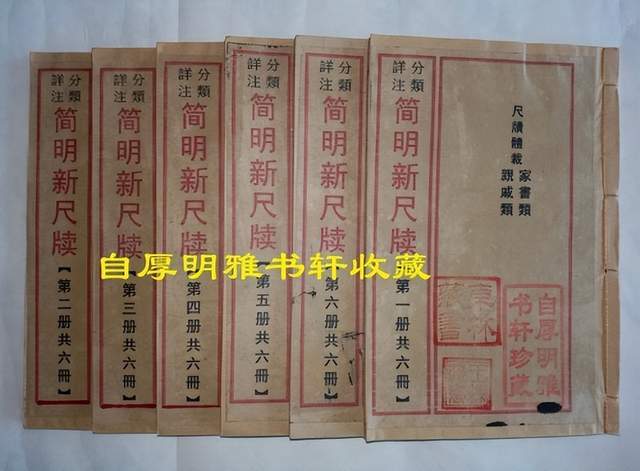 分類
詳注
简明新尺牍
【第二册共六冊】
分類
詳注
简明新尺牍
【第三册共六冊】
分類
詳注
简明新尺牍
【第四册共六冊】
分類
詳注
简明新尺牍
【第五册共六冊】
分類
詳注
简明新尺牍
【第六册共六冊】
分類
詳注
简明新尺牍
【第一册共六冊】
尺牘體裁
家書類
親戚類
自厚明雅
书轩珍藏
自厚明雅书轩收藏